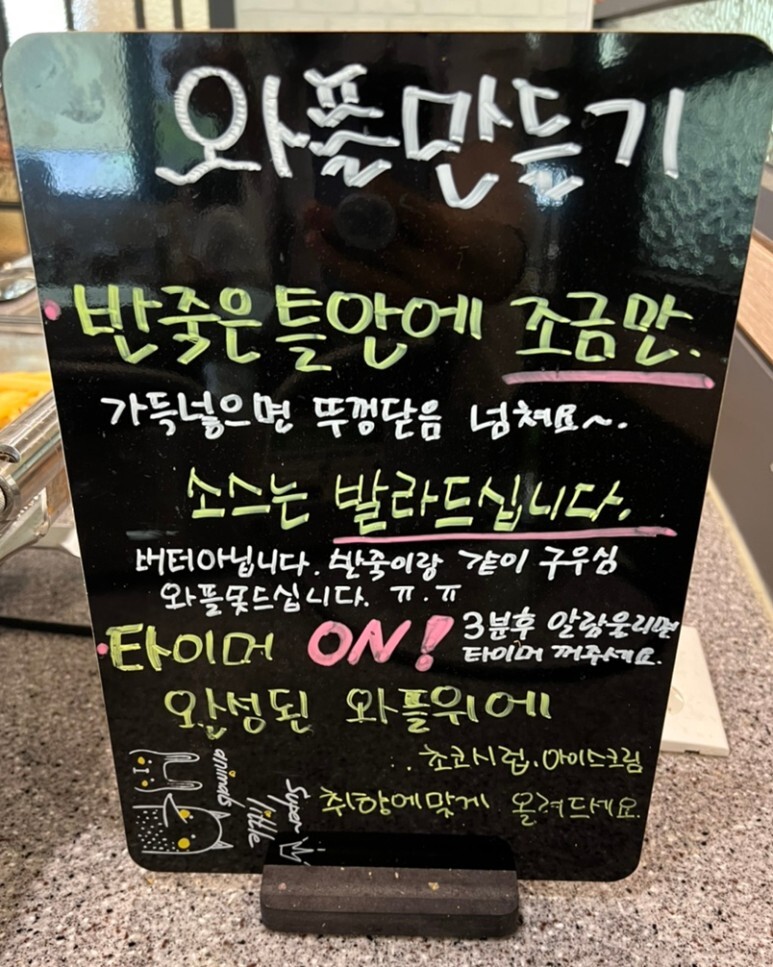 와플만들기
반죽은 틀안에 조금만.
가득넣으면 뚜껑닫음 넘쳐요~.
소스는 발라드십니다.
버터아닙니다. 반죽이랑 같이 구우심
와플못드십니다. ㅠ.ㅠ
타이머 ON! 3분후 알람울리면
타이머 꺼주세요.
완성된 와플위에
초코시럽.아이스크림
취향에맞게 올려드세요.
animals
little
super